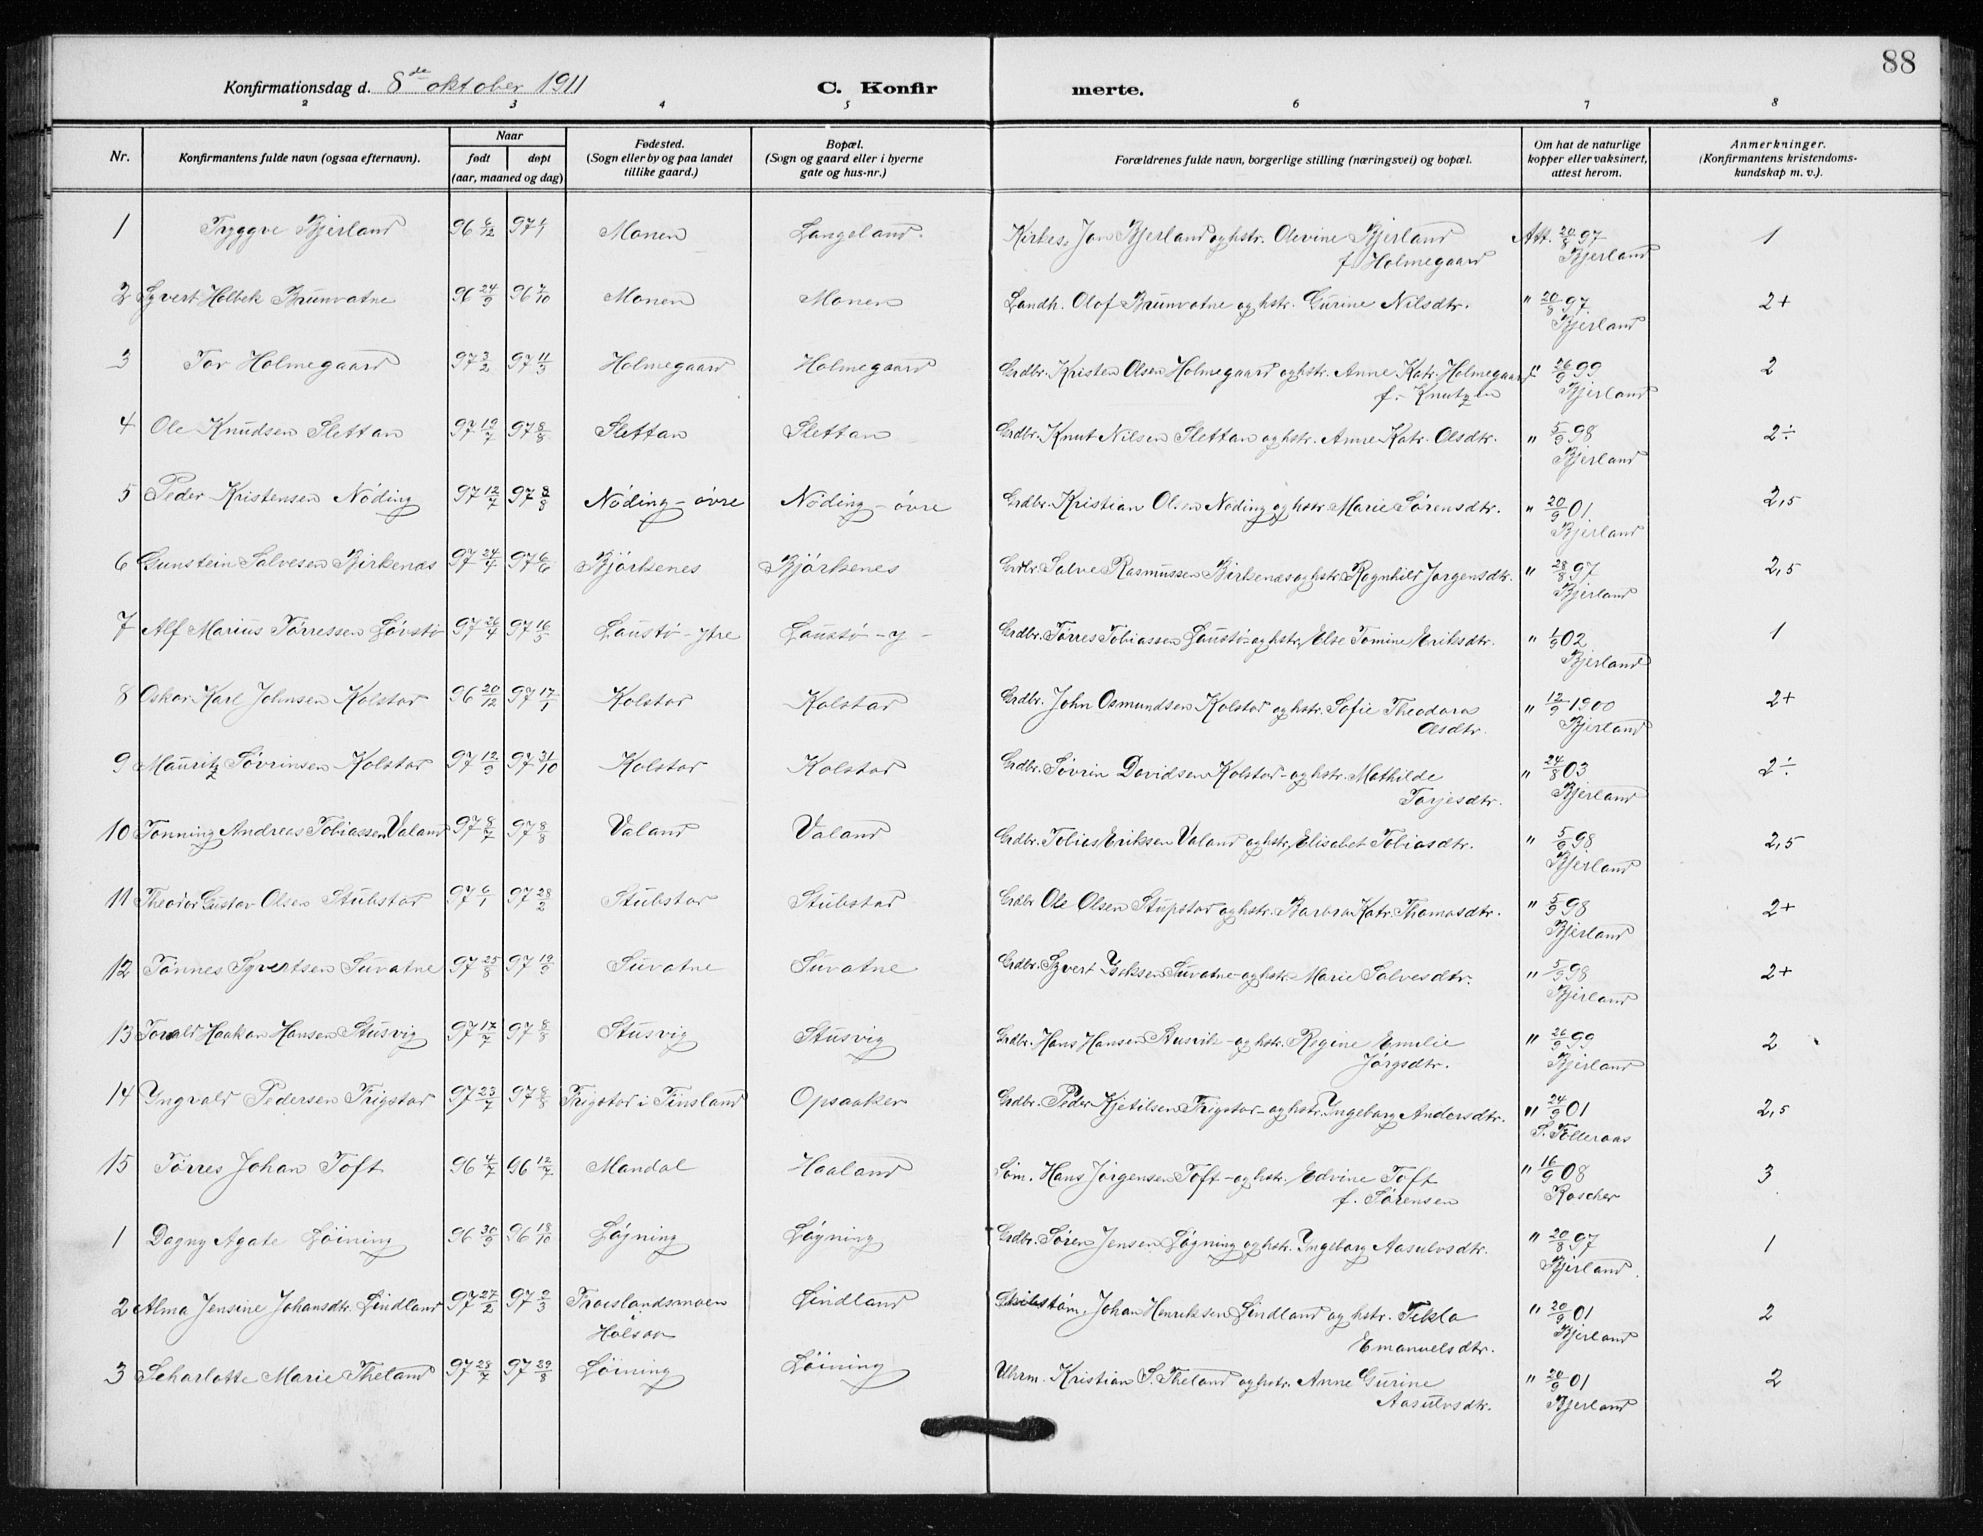 88
Konfirmationsdag d. 8de oktober 1911 C. Konfir merte.
2 3 4 5 6 7 8
Nr. Konfirmantens fulde navn (ogsaa efternavn). Naar født døpt (aar, maaned og dag) Fødested. (Sogn eller by og paa landet tillike gaard.) Bopæl. (Sogn og gaard eller i byerne gate og hus-nr.) Forældrenes fulde navn, borgerlige stilling (næringsvei) og bopæl. Om hat de naturlige kopper eller vaksinert, attest herom. Anmerkninger. (Konfirmantens kristendoms-kundskap m. v.).
1 Tryggve Bjerland 96 6/12 97 1/1 Monen Langeland. Kirkes. Jan Bjerland og hstr. Olevine Bjerland Att. 20/8 97 1
f. Holmegaard Bjerland
2 Syvert Holbek Brunvatne 96 24/9 96 7/10 Monen Monen Landh. Olof Brunvatne og hstr. Gurine Nilsdtr. " 20/8 97. 2+
Bjerland
3 Tor Holmegaard 97 3/2 97 11/3 Holmegaard Holmegaard Grdbr. Kristen Olsen Holmegaard og hstr. Anne Katr. Holmegaard " 26/9 99 2
f. Knutzen Bjerland
4 Ole Knudsen Slettan 97 19/7 97 8/8 Slettan Slettan Grdbr. Knut Nilsen Slettan og hstr. Anne Katr. Olsdtr. " 5/9 98 2÷
Bjerland
5 Peder Kristensen Nöding 97 12/7 97 8/8 Nöding - övre Nöding - övre Grdbr. Kristian Olsen Nöding og hstr. Marie Sörensdtr. " 20/9 01 2,5
Bjerland
6 Gunstein Salvesen Birkenæs 97 24/4 97 6/6 Björkenes Björkenes Grdbr. Salve Rasmussen Birkenæs og hstr. Ragnhild Jørgensdtr. " 28/8 97 2,5
Bjerland
7 Alf Marius Törressen Lövstö 97 26/4 97 16/5 Laustö - ytre Laustö - y - Grdbr. Törres Tobiassen Laustö og hstr. Else Tomine Eriksdtr. " 1/9 02 1
Bjerland
8 Oskar Karl Johnsen Kolstad 96 20/12 97 17/1 Kolstad Kolstad Grdbr. John Osmundsen Kolstad og hstr. Sofie Theodora " 12/9 1900 2+
Olsdtr. Bjerland
9 Mauritz Sövrinsen Kolstad 97 12/9 97 31/10 Kolstad Kolstad Grdbr. Sövrin Davidsen Kolstad - og hstr. Mathilde " 24/8 03 2÷
Torjesdtr. Bjerland
10 Tönning Andreas Tobiassen Valand 97 8/7 97 8/8 Valand Valand Grdbr. Tobias Eriksen Valand og hstr. Elisabet Tobiasdtr. " 5/9 98 2,5
Bjerland
11 Theodor Gustav Olsen Stubstad 97 6/1 97 28/2 Stubstad Stubstad Grdbr. Ole Olsen Stupstad og hstr. Barbra Katr. Thomasdtr. " 5/9 98 2+
Bjerland
12 Tönnes Syvertsen Suvatne 97 25/8 97 19/9 Suvatne Suvatne Grdbr. Syvert Isaksen Suvatne - og hstr. Marie Salvesdtr. " 5/9 98 2+
Bjerland
13 Torald Haakon Hansen Stusvig 97 17/7 97 8/8 Stusvig Stusvig Grdbr. Hans Hansen Stusvik - og hstr. Regine Emilie " 26/9 99 2
Jørgsdtr. Bjerland
14 Yngvald Pedersen Frigstad 97 23/7 97 8/8 Frigstad i Finsland Opsaaker Grdbr. Peder Kjetilsen Frigstad - og hstr. Yngeborg Andersdtr. " 24/9 01 2,5
S. Folleraas
15 Törres Johan Toft 96 4/7 96 12/7 Mandal Haaland Søm. Hans Jørgensen Toft - og hstr. Edvine Toft " 16/9 08 3
f. Sørensen Roscher
1 Dagny Agate Löining 96 30/9 96 18/10 Løgning Løgning Grdbr. Søren Jensen Løgning og hstr. Yngeborg Aasulvsdtr. " 20/8 97 1
Bjerland
2 Alma Jensine Johansdtr. Lindland 97 27/2 97 2/3 Froislandsmoen Lindland Johan Henriksen Lindland og hstr. Tekla " 20/9 01 2
Hølsaa Emanuelsdtr. Bjerland
3 Scharlotte Marie Theland 97 28/7 97 29/8 Löining Löining Uhrm. Kristian S. Theland og hstr. Anne Gurine " 20/9 01 2
Aasulvsdtr. Bjerland